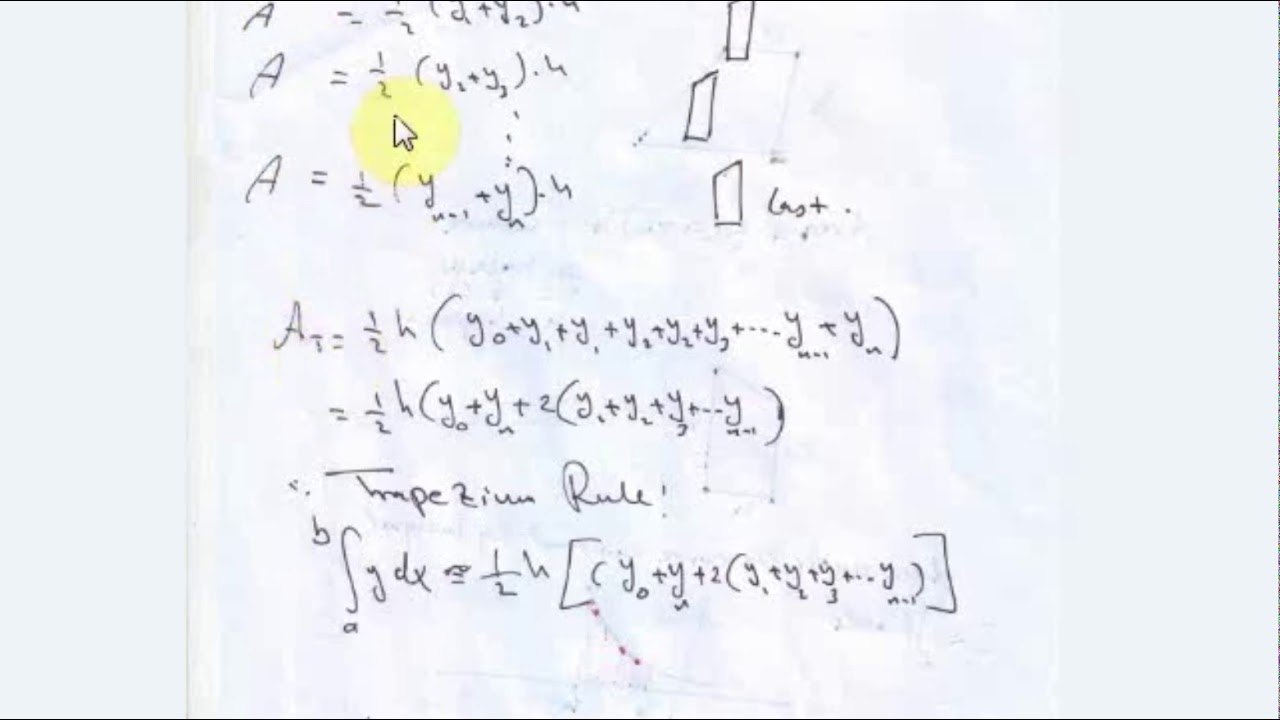 A = 1/2 (y₁+y₂).h
A = 1/2 (y₂+y₃).h
⋮
A = 1/2 (yₙ₋₁+yₙ).h Last.
A_T = 1/2 h (y₀+y₁+y₁+y₂+y₂+y₃+....yₙ₋₁+yₙ)
= 1/2 h(y₀+yₙ+2(y₁+y₂+y₃+...yₙ₋₁)
∴ Trapezium Rule!
∫ₐᵇ y dx ≈ 1/2 h [(y₀+yₙ+2(y₁+y₂+y₃+...yₙ₋₁)]